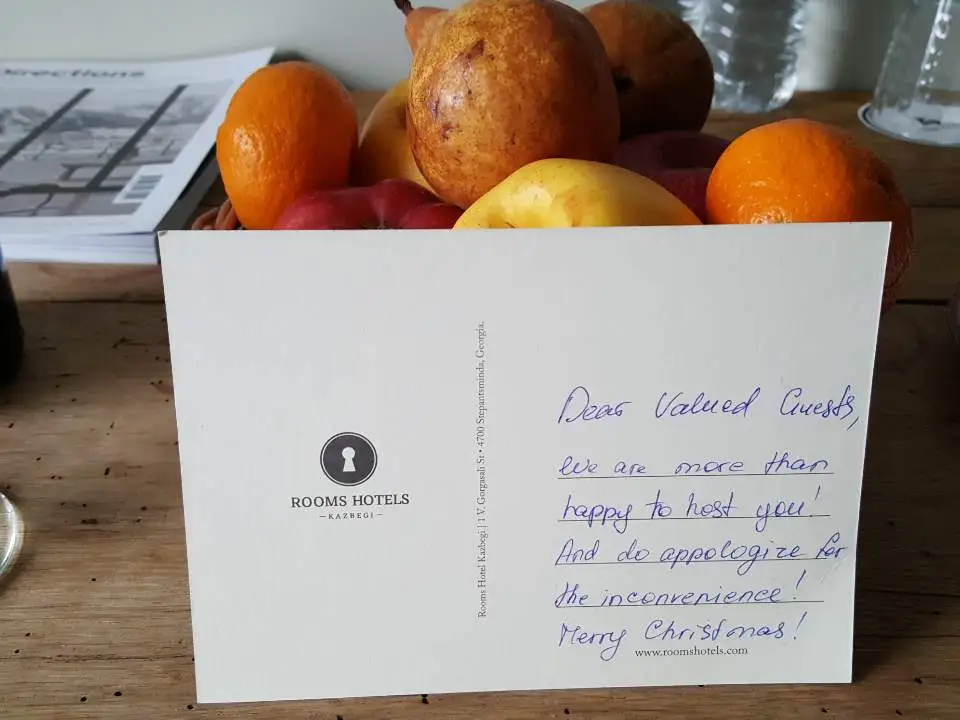 Directions
ROOMS HOTELS
– KAZBEGI –
Rooms Hotel Kazbegi | 1 V. Gorgasali St • 4700 Stepantsminda, Georgia.
Dear Valued Guests,
We are more than
happy to host you!
And do appologize for
the inconvenience!
Merry Christmas!
www.roomshotels.com